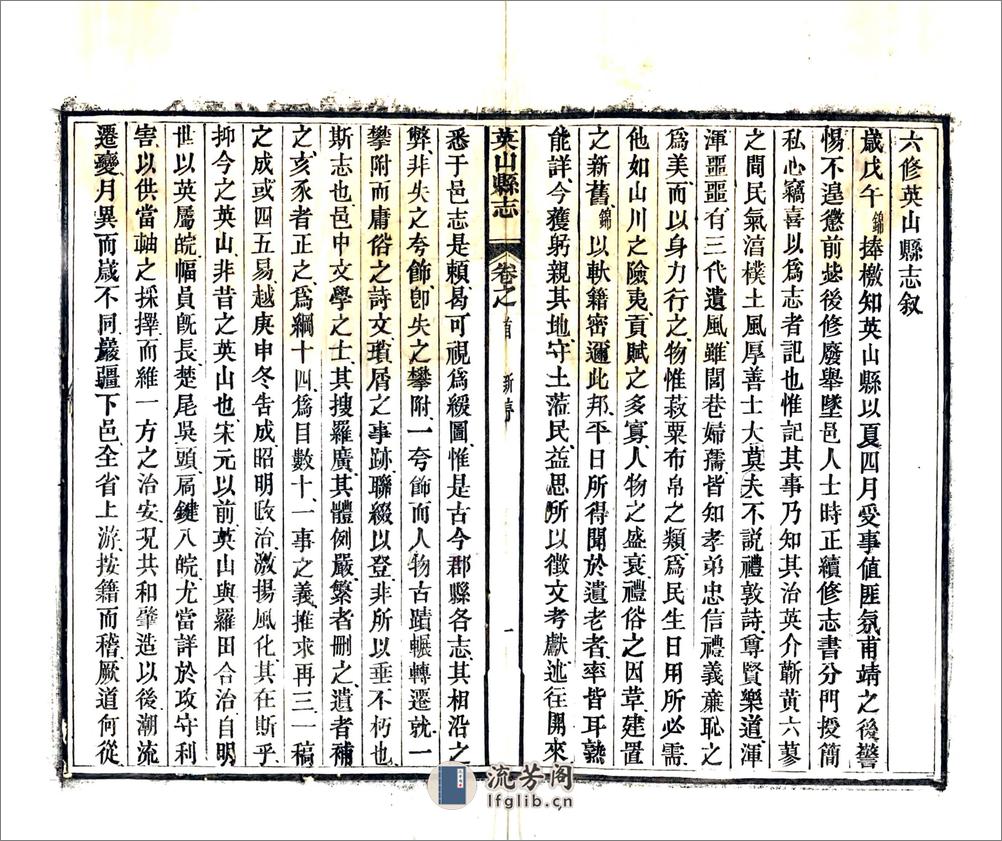 六修英山縣志叙
歲戊午錦捧檄知英山縣以夏四月受事值匪氛甫靖之後警
惕不遑懲前毖後修廢舉墜邑人士時正續修志書分門授簡
私心竊喜以爲志者記也惟記其事乃知其治英介蘄黃六蓼
之間民氣湻樸土風厚善士大夫莫不說禮敦詩尊賢樂道渾
渾噩噩有三代遺風雖閭巷婦孺皆知孝弟忠信禮義亷恥之
爲美而以身力行之物惟菽粟布帛之類爲民生日用所必需
他如山川之險夷貢賦之多寡人物之盛衰禮俗之因革建置
之新舊錦以軑籍密邇此邦平日所得聞於遺老者率皆耳熟
能詳今獲躬親其地守土蒞民益思所以徵文考獻述往開來
英山縣志 卷之首 新序 一
悉于邑志是賴曷可視爲緩圖惟是古今郡縣各志其相沿之
弊非失之夸飾卽失之攀附一夸飾而人物古蹟輾轉遷就一
攀附而庸俗之詩文瑣屑之事跡聯綴以登非所以垂不朽也
斯志也邑中文學之士其搜羅廣其體例嚴繁者刪之遺者補
之亥豕者正之爲綱十四爲目數十一事之義推求再三一稿
之成或四五易越庚申冬告成昭明政治激揚風化其在斯乎
抑今之英山非昔之英山也宋元以前英山與羅田合治自明
世以英屬皖幅員旣長楚尾吳頭扃鍵八皖尤當詳於攻守利
害以供當軸之採擇而維一方之治安况共和肇造以後潮流
遷變月異而歲不同巖疆下邑全省上游按籍而稽厥道何從
流芳閣
lfglib.cn